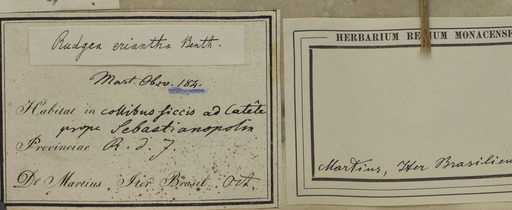 Rudgea eriantha Benth.
Mart. Obs. 184.
Habitat in collibus siccis ad Catête
prope Sebastianopolin
Provinciae R. d. J.
Dr Martius Iter Brasil. Oct.
HERBARIUM REGIUM MONACENSE
Martius, Iter Brasilien